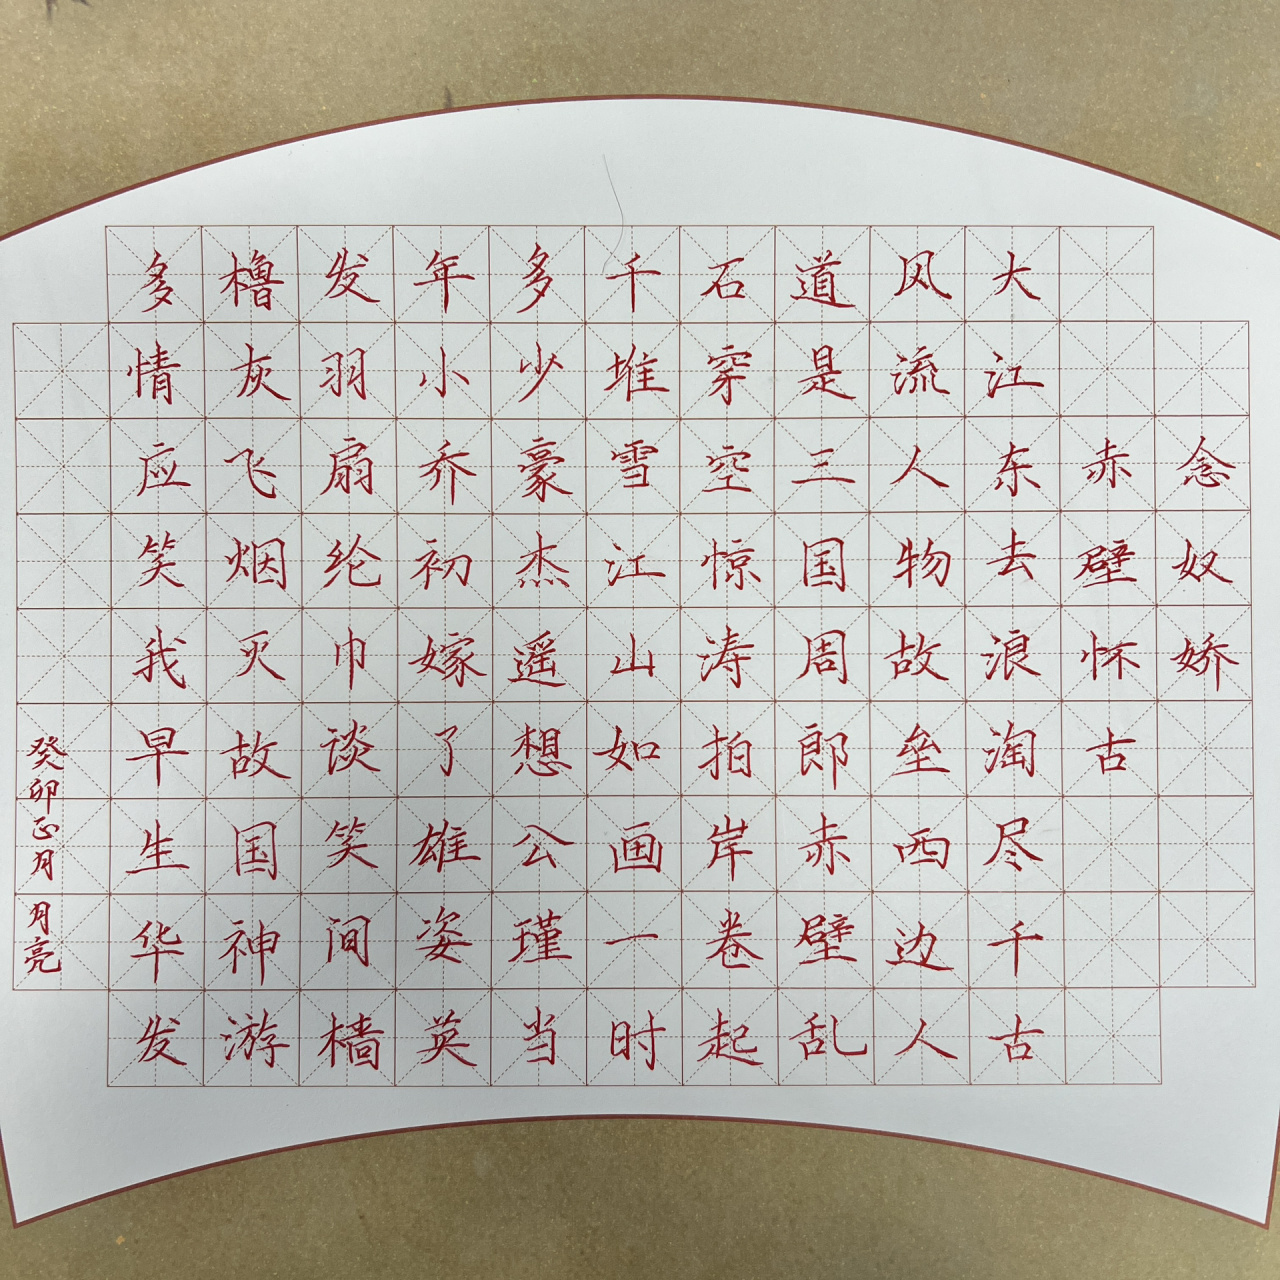 念奴娇
赤壁怀古
大江东去浪淘尽千古
风流人物故垒西边人
道是三国周郎赤壁乱
石穿空惊涛拍岸卷起
千堆雪江山如画一时
多少豪杰遥想公瑾当
年小乔初嫁了雄姿英
发羽扇纶巾谈笑间樯
橹灰飞烟灭故国神游
多情应笑我早生华发
癸卯正月 月亮